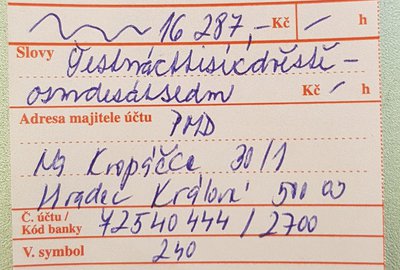 16 287,- Kč / h
Slovy Šestnácttisícdvěstě-
osmdesátsedm Kč / h
Adresa majitele účtu PMD
Na Kropáčce 30/1
Hradec Králové 500 03
Č. účtu / Kód banky 72540444 / 2700
V. symbol 240